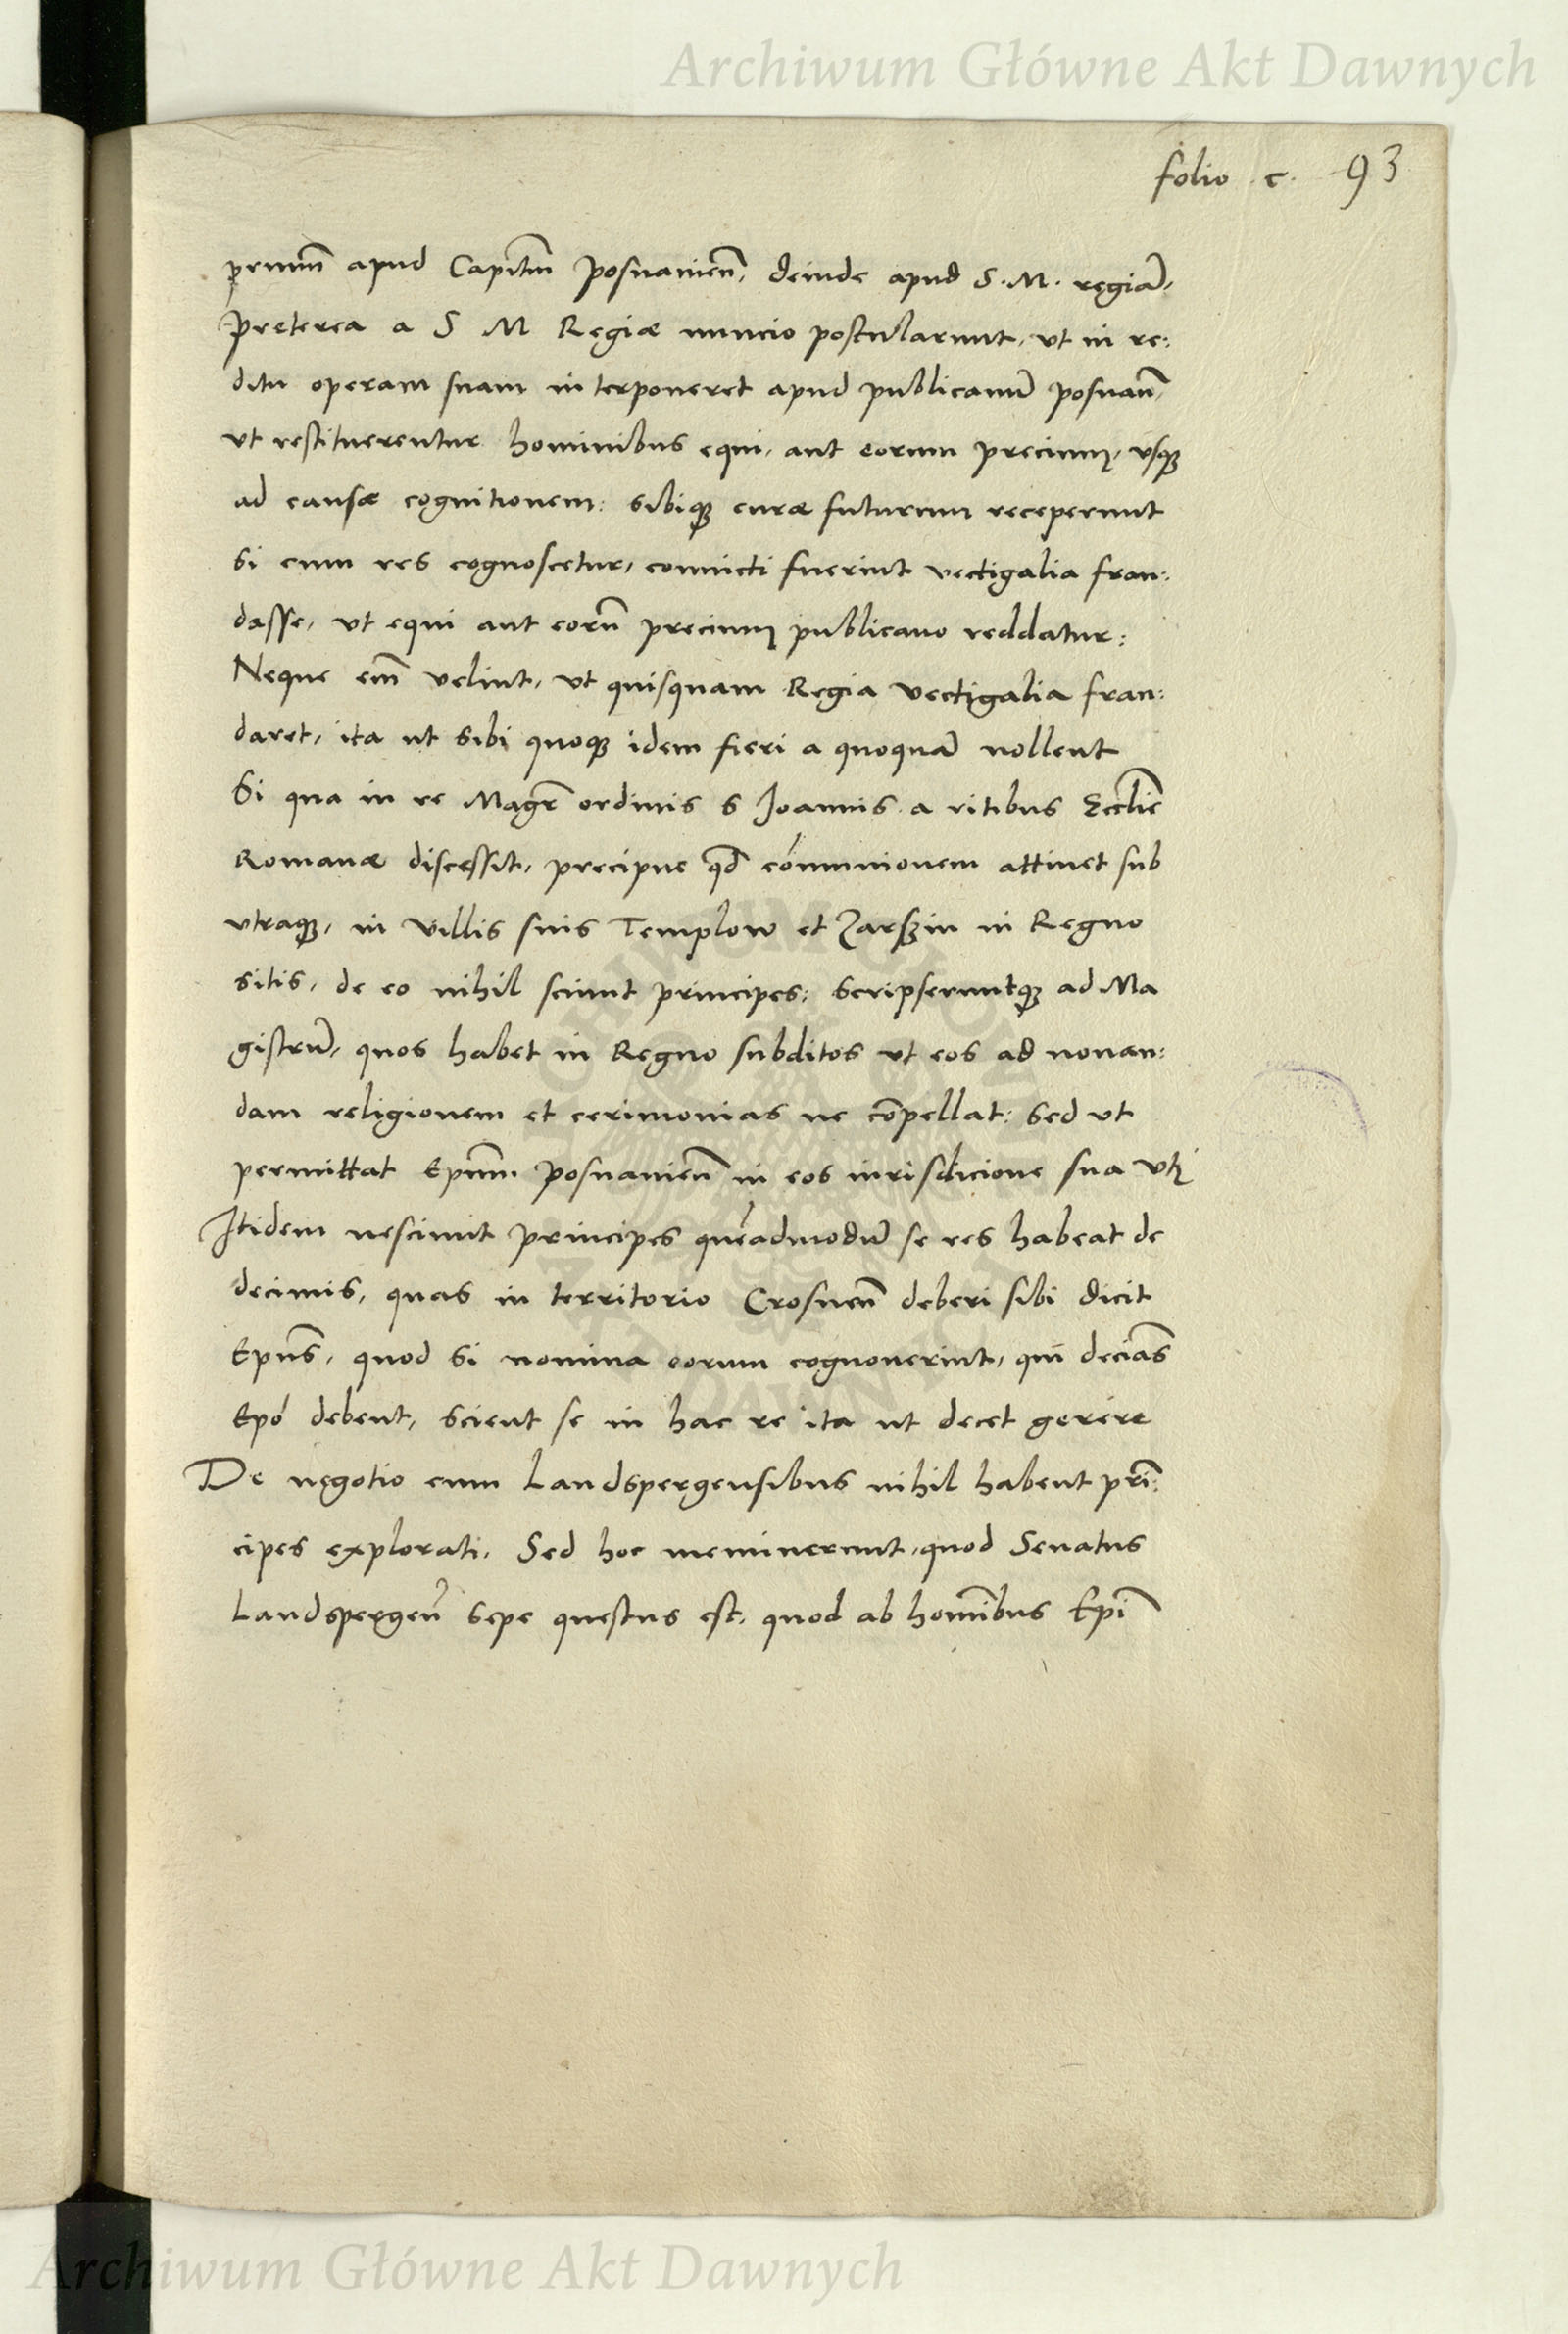 Archiwum Główne Akt Dawnych
folio . c . 93
primũ apud Capitm̃ posnanieñ, deinde apud S. M. regiã,
preterea a S M Regiæ nuncio postularunt, ut in re:
ditu operam suam interponeret apud publicanũ posnañ,
ut restituerentur hominibus equi, aut eorum precium, usqꝫ
ad causæ cognitionem: sibiqꝫ curæ futurum receperunt
si cum res cognoscetur, convicti fuerint vectigalia frau:
dasse, ut equi aut eorũ precium publicano reddatur:
Neque em̃ velint, ut quisquam Regia vectigalia frau:
daret, ita ut sibi quoqꝫ idem fieri a quoquã nollent
Si qua in re Magr̃ ordinis S Joannis a ritibus Ecclie
Romanæ discessit, precipue qd̃ cõmunionem attinet sub
utraqꝫ, in villis suis Templow et Zarszin in Regno
sitis, de eo nihil sciunt principes: scripseruntqꝫ ad Ma
gistrũ, quos habet in Regno subditos ut eos ad novan:
dam religionem et cerimonias ne cõpellat: sed ut
permittat Epum̃ posnanieñ in eos iurisdicione sua uti
Itidem nesciunt principes quẽadmodũ se res habeat de
decimis, quas in territorio Crosneñ deberi sibi dicit
Epus̃, quod si nomina eorum cognoverint, qui decĩas
Epõ debent, scient se in hac re ita ut decet gerere
De negotio cum Landspergensibus nihil habent prĩ:
cipes explorati, Sed hoc meminerunt, quod Senatus
Landspergeñ sepe questus est, quod ab homĩbus Epĩ
Archiwum Główne Akt Dawnych